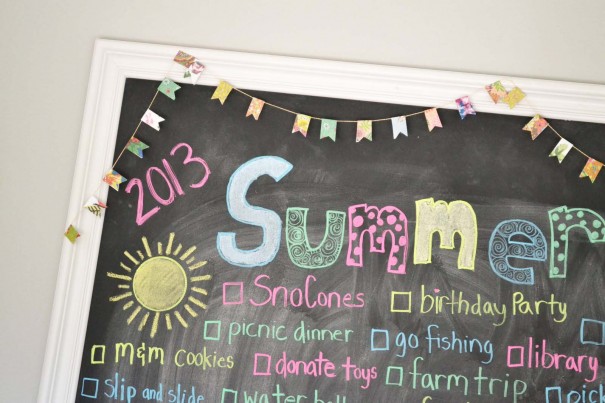 2013
Summer
SnoCones birthday Party
picnic dinner go fishing
m&m cookies donate toys library
Slip and slide farm trip